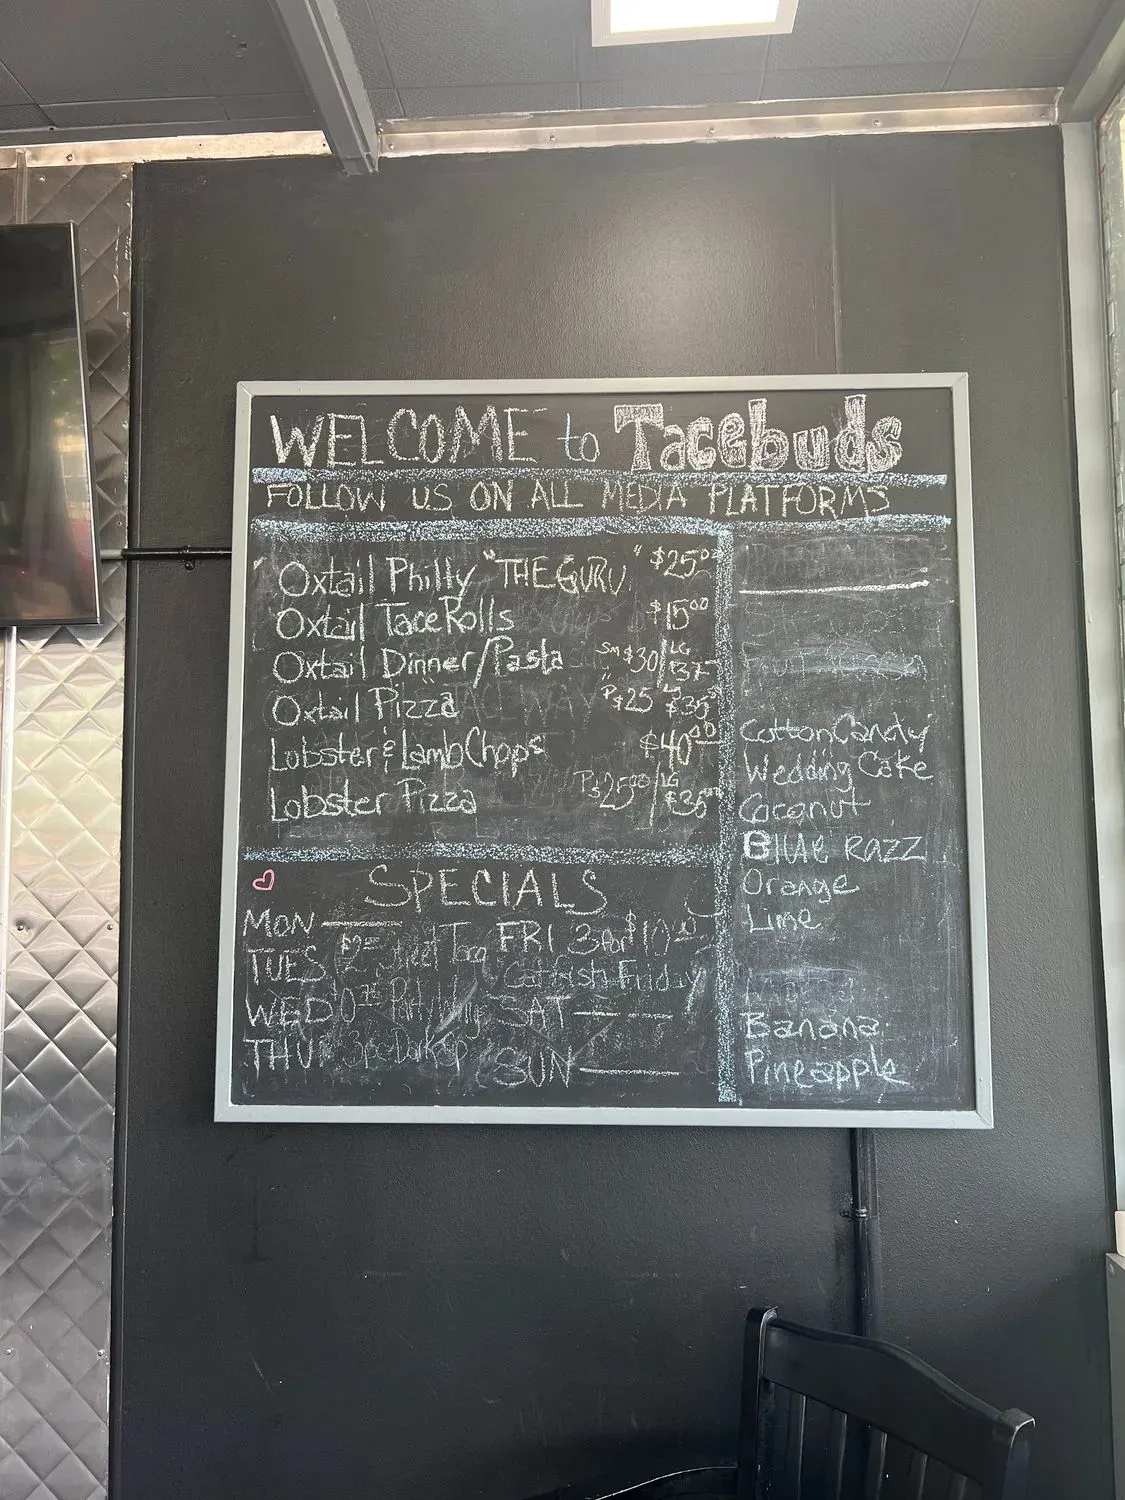 WELCOME to Tacebuds
FOLLOW US ON ALL MEDIA PLATFORMS
Oxtail Philly "THE GURU" $25.00
Oxtail TaceRolls $15.00
Oxtail Dinner/Pasta Sm $30/LG $37
Oxtail Pizza P $25 $35
Lobster & LambChops $40.00
Lobster Pizza P $25.00/LG $35
SPECIALS
MON
TUES $2 Street Taco
WED
THU 3pc
FRI 3 for $10.00
Catfish Friday
SAT
SUN
Cotton Candy
Wedding Cake
Coconut
Blue Razz
Orange
Lime
Banana
Pineapple